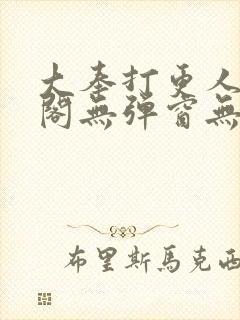 大奉打更人
閣無彈窗無
布里斯馬克西